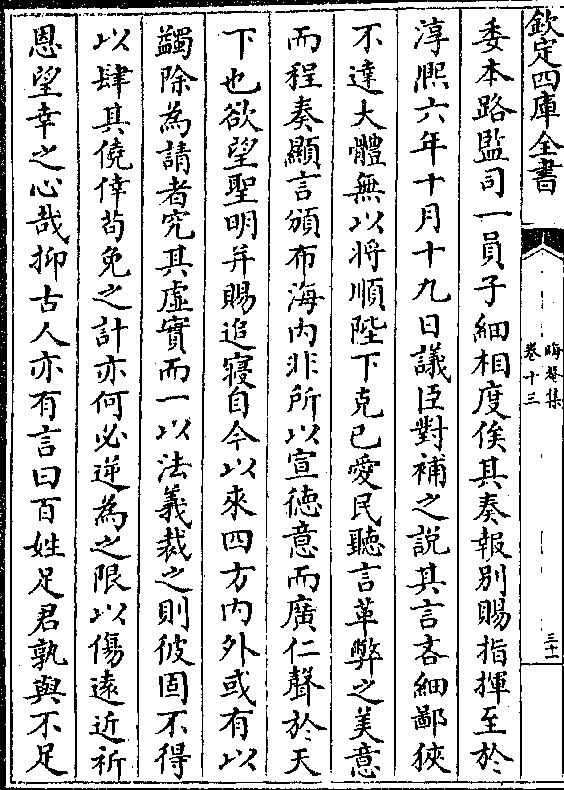 欽定四庫全書
晦菴集
卷十三
三十一
委本路監司一員子細相度俟其奏報別賜指揮至於
淳熙六年十月十九日議臣對補之說其言吝細鄙狹
不達大體無以將順陛下克己愛民聽言革弊之美意
而程奏顯言頒布海内非所以宣徳意而廣仁聲於天
下也欲望聖明并賜追寢自今以來四方内外或有以
蠲除為請者究其虚實而一以法義裁之則彼固不得
以肆其僥倖苟免之計亦何必逆為之限以傷遠近祈
恩望幸之心哉抑古人亦有言曰百姓足君孰與不足